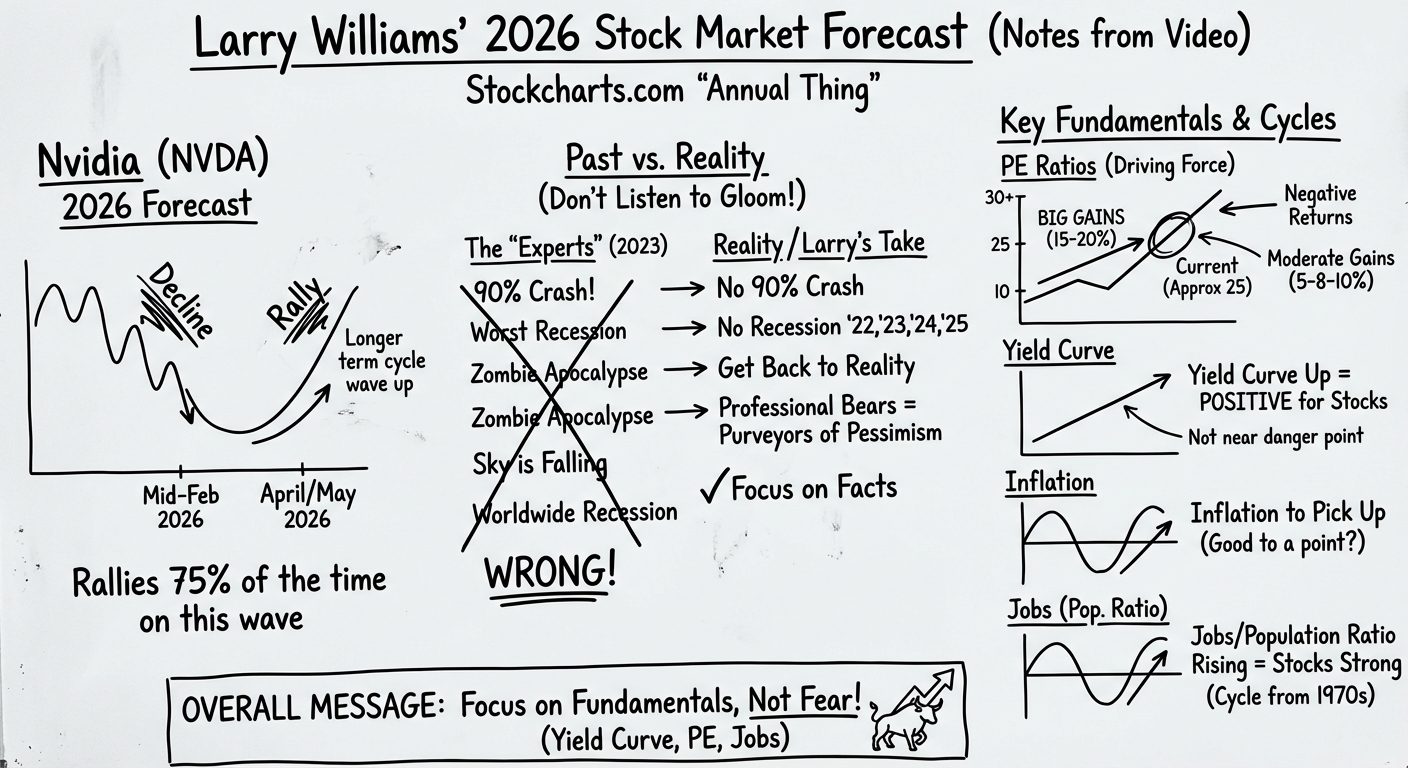 Larry Williams' 2026 Stock Market Forecast (Notes from Video)
Stockcharts.com "Annual Thing"
Nvidia (NVDA)
2026 Forecast
Decline
Rally
Longer
term cycle
wave up
Mid-Feb
2026
April/May
2026
Rallies 75% of the time
on this wave
Past vs. Reality
(Don't Listen to Gloom!)
The "Experts" (2023)
Reality/Larry's Take
90% Crash!
No 90% Crash
Worst Recession
No Recession '22,'23,'24,'25
Zombie Apocalypse
Get Back to Reality
Zombie Apocalypse
Professional Bears =
Purveyors of Pessimism
Sky is Falling
✓Focus on Facts
Worldwide Recession
WRONG!
Key Fundamentals & Cycles
PE Ratios (Driving Force)
30+
25
10
BIG GAINS
(15-20%)
Negative
Returns
Current
(Approx 25)
Moderate Gains
(5-8-10%)
Yield Curve
Yield Curve Up =
POSITIVE for Stocks
Not near danger point
Inflation
Inflation to Pick Up
(Good to a point?)
Jobs (Pop. Ratio)
Jobs/Population Ratio
Rising = Stocks Strong
(Cycle from 1970s)
OVERALL MESSAGE: Focus on Fundamentals, Not Fear!
(Yield Curve, PE, Jobs)